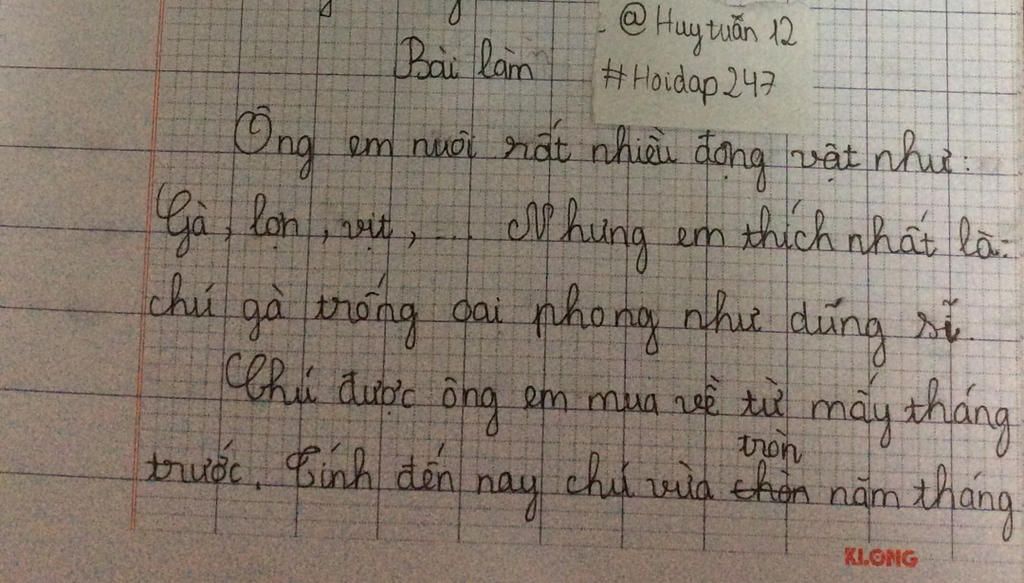 @Huytuấn 12
Bài làm
#Hoidap247
Ông em nuôi rất nhiều động vật như:
Gà, lợn, vịt, .... Nhưng em thích nhất là:
chú gà trống oai phong như dũng sĩ.
Chú được ông em mua về từ mấy tháng
tròn
trước. Tính đến nay chú vừa chòn năm tháng
KLONG